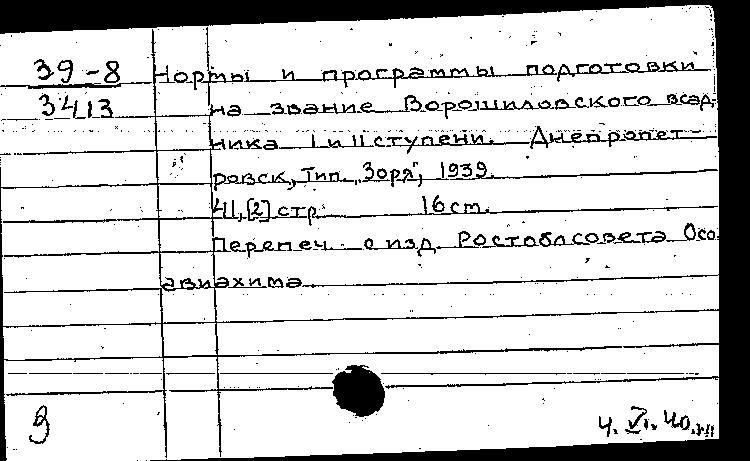 39-8
3413
Нормы и программы подготовки
на звание Ворошиловского всад-
ника I и II ступени. Днепропет-
ровск, Тип. "Заря", 1939.
41,[2] стр. 16 см.
Перепеч. с изд. Ростоблсовета Осо-
авиахима.
З
4.VI.40